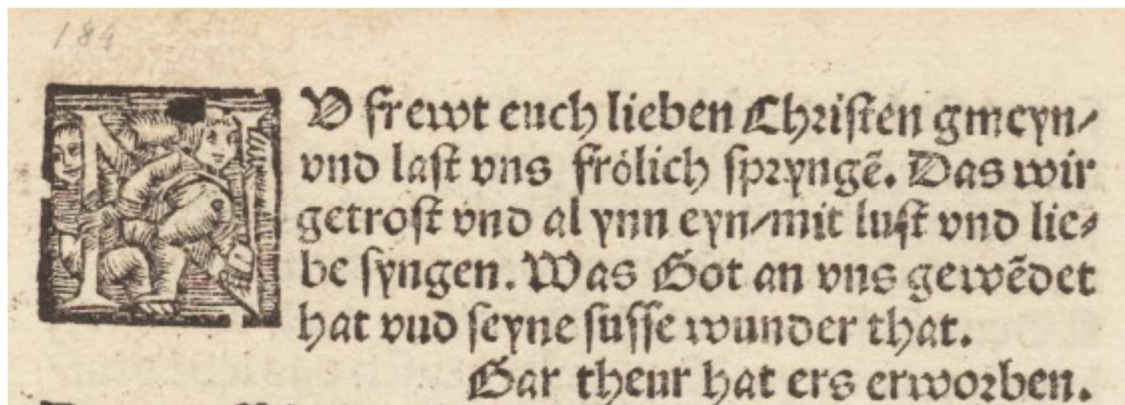 184
NV frewt euch lieben Christen gmeyn/
vnd last vns frölich spryngẽ. Das wir
getrost vnd al ynn eyn/mit lust vnd lie⸗
be syngen. Was Got an vns gewẽdet
hat vnd seyne susse wunder that.
Gar theur hat ers erworben.